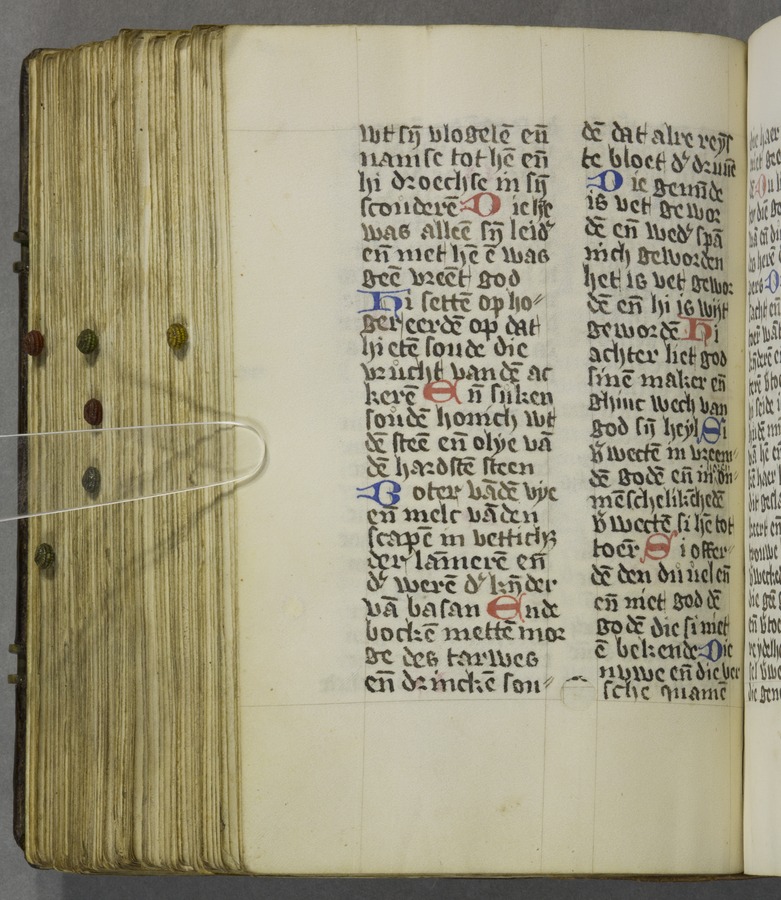 wt sÿ vlogelē eñ
namse tot hē eñ
hi droechse in sÿ
scouderē Die hē
was alleē sÿ leidʼ
eñ niet hē ē was
geē vreēt god
Hi settē op ho〃
ger eerdē op dat
hi etē soude die
vrůcht van dē ac
kerē Eñ suken
soudē honich wt
dē steē eñ olye vā
dē hardstē steen
Boter vā dē vye
eñ melc vā den
scapē in vettichʒ
der lāmerē eñ
dʼ werē dʼ kÿder
vā basan Ende
bockē mettē mor
ge des tarwes
eñ drinckē son〃
dē dat alre reÿs
te bloet dʼ druuē
Die gemīde
is vet gewor
dē eñ wedʼ spā
nich geworden
het is vet gewor
dē eñ hi is wÿt
gewordē Hi
achter liet god
sinē maker eñ
ghinc wech van
god sÿ heyl Si
v̄wectē in vreem〃
dē godē eñ in on〃
mēschelikhedē
v̄wectē si hē tot
toerē Si offer〃
dē den duuelen
eñ niet god dē
godē die si niet
ē bekende Die
nuwe eñ die ver
sche quamē